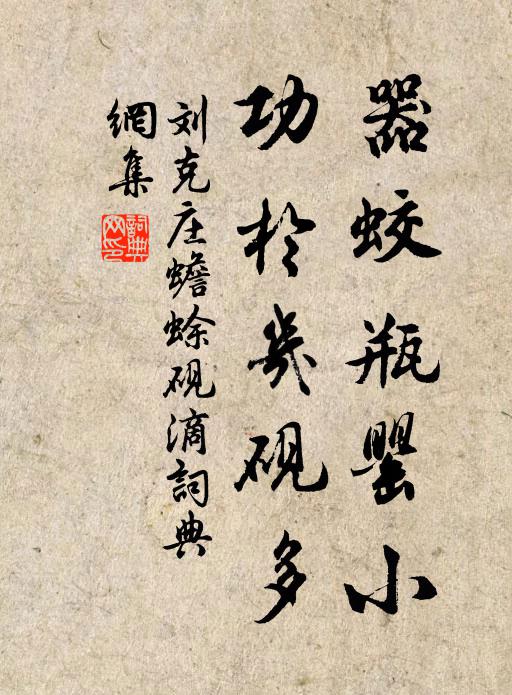 器蛟瓶罂小
功於幾硯多
刘克庄蟾蜍硯滴詞典
網集
詞典網印